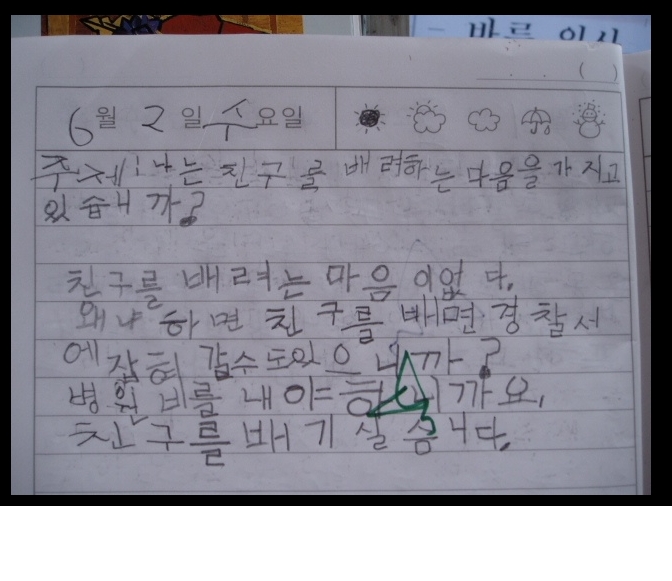 바른 인사
( )
6월 2일 수요일
주제:나는 친구를 배려하는 마음을 가지고
있습니까?
친구를 배려는 마음이없다.
왜냐하면 친구를 배면 경찰서
에잡혀갈수도있으니까?
병원비를 내야하니까요.
친구를 배기실습니다.